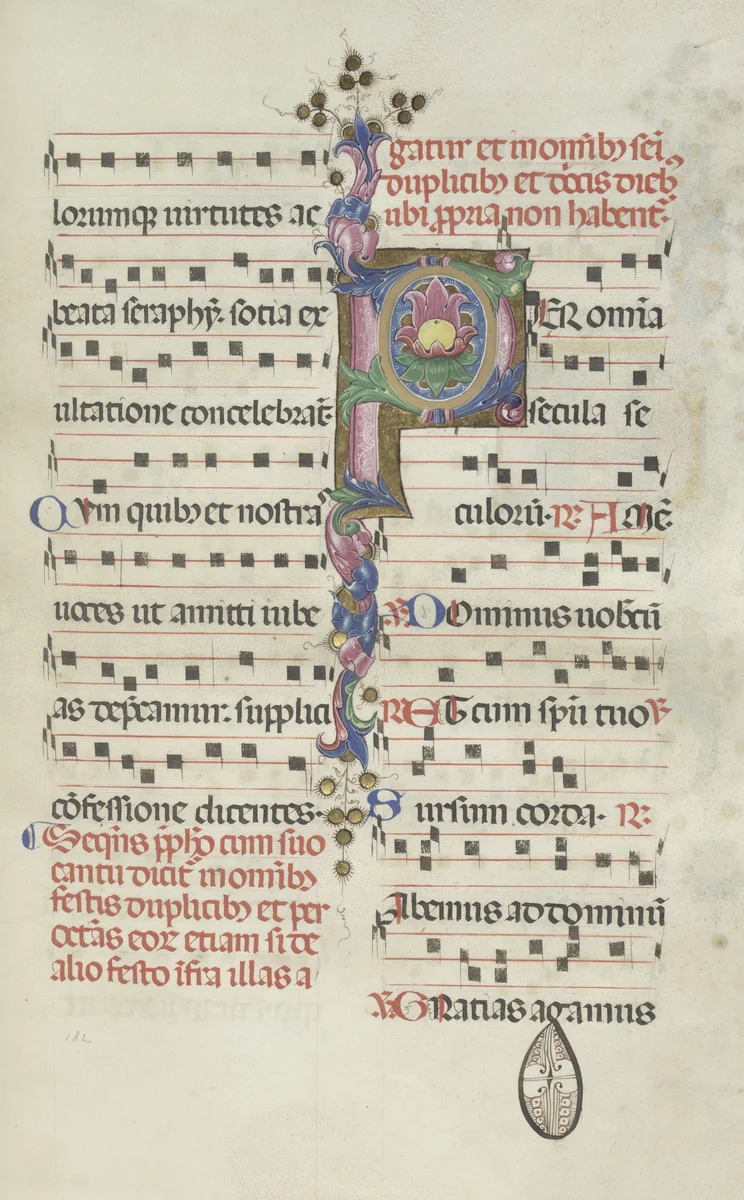 lorumq̃ uirtutes ac
beata seraphỹ. sotia ex
ultatione concelebrãt.
Qvm quibꝫ et nostras
uoces ut amitti iube
as dep̃camur. supplici
cõfessione dicentes.
Seqñs p̃phº cum suo
cantu dicit̃ in omĩbꝫ
festis duplicibꝫ et per
octãs eoꝝ etiam si de
alio festo ĩfra illas a
gatur et in omĩbꝫ fẽi
duplicibꝫ et oc̃tis dieb
ubi ꝓpria non habent̃.
PER omĩa
secula se
culorũ. R. Amẽ.
Dominus uobc̃ũ
R. ET cum sp̃ũ tuo V
Sursum corda. R.
Abemus ad dominũ
R. GRatias agamus
182